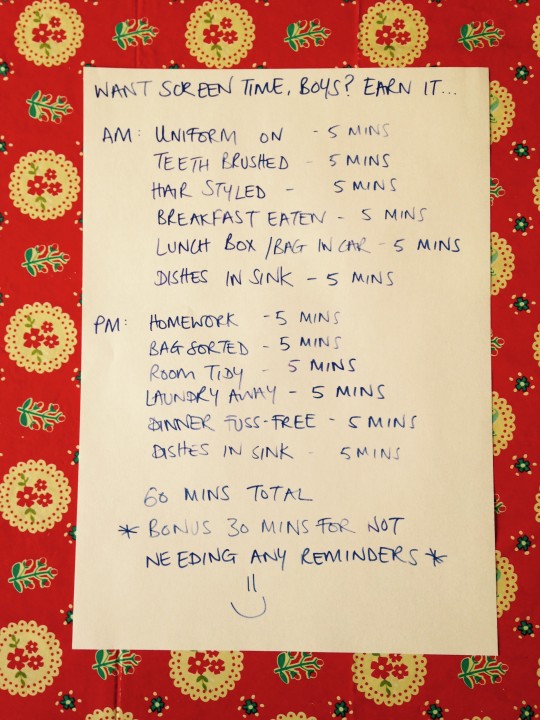 WANT SCREEN TIME, BOYS? EARN IT...
AM: UNIFORM ON - 5 MINS
TEETH BRUSHED - 5 MINS
HAIR STYLED - 5 MINS
BREAKFAST EATEN - 5 MINS
LUNCH BOX/BAG IN CAR - 5 MINS
DISHES IN SINK - 5 MINS
PM: HOMEWORK - 5 MINS
BAG SORTED - 5 MINS
ROOM TIDY - 5 MINS
LAUNDRY AWAY - 5 MINS
DINNER FUSS-FREE - 5 MINS
DISHES IN SINK - 5 MINS
60 MINS TOTAL
* BONUS 30 MINS FOR NOT
NEEDING ANY REMINDERS *